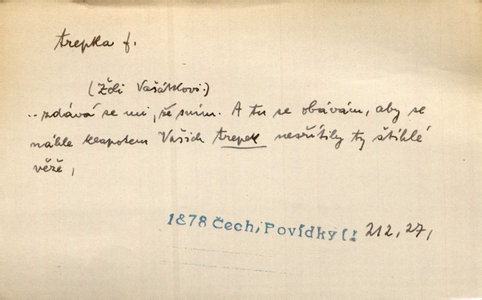 trepka f.
(Ždi Vašátkovi.)
..zdává se mi, že sním. A tu se obávám, aby se
náhle klapotem Vašich trepek nesřítily ty štíhlé
věže,
1878 Čech, Povídky I: 212, 27,